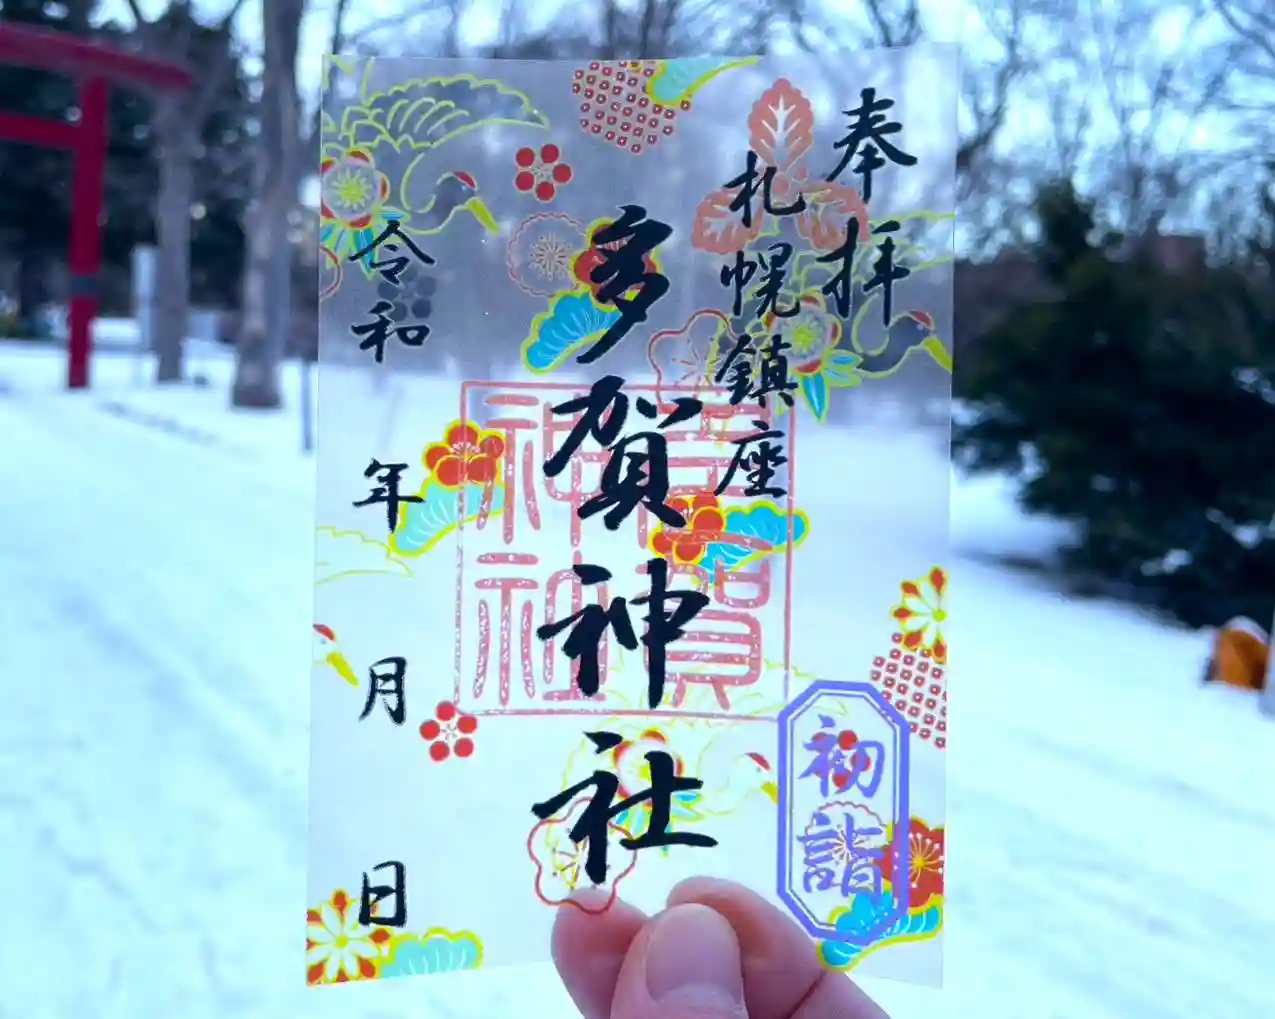 奉拝
札幌鎮座
多賀神社
多賀
神社
令和 年 月 日
初詣